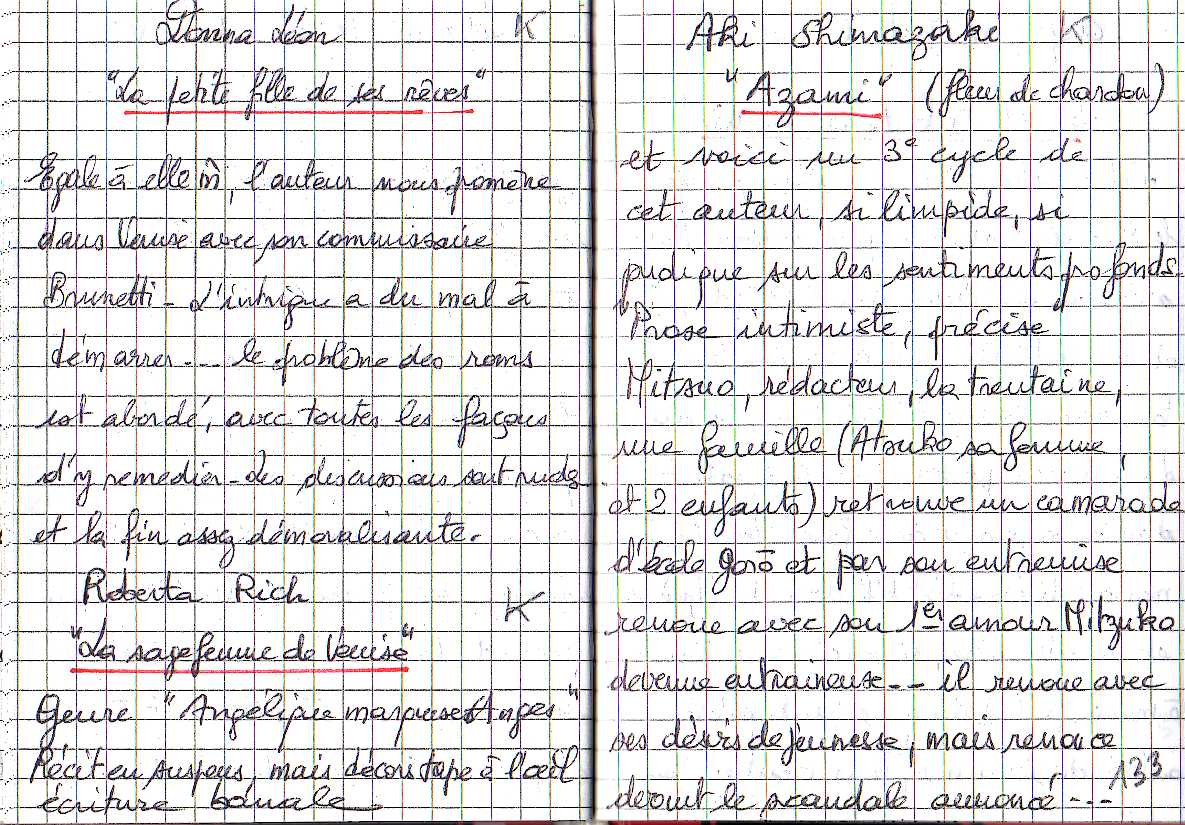 Donna Léon K
"La petite fille de ses rêves"
Egale à elle m̂, l'auteur nous promène
dans Venise avec son commissaire
Brunetti - L'intrigue a du mal à
démarrer --- le problème des roms
est abordé, avec toutes les façons
d'y remedier - les discussions sont rudes
et la fin assez démoralisante.
Roberta Rich K
"La sage femme de Venise"
Genre "Angélique marquise Anges"
Récit en suspens, mais décors tape à l'œil
écriture banale
Aki Shimazaki K
"Azami" (fleur de chardon)
et voici un 3e cycle de
cet auteur, si limpide, si
pudique sur les sentiments profonds.
Prose intimiste, précise
Mitsuo, rédacteur, la trentaine,
une famille (Atsuko sa femme,
et 2 enfants) retrouve un camarade
d'école gorō et par son entremise
renoue avec son 1er amour Mitzuko
devenue entraineuse -- il renoue avec
ses désirs de jeunesse, mais renonce
devant le scandale annoncé ---
133